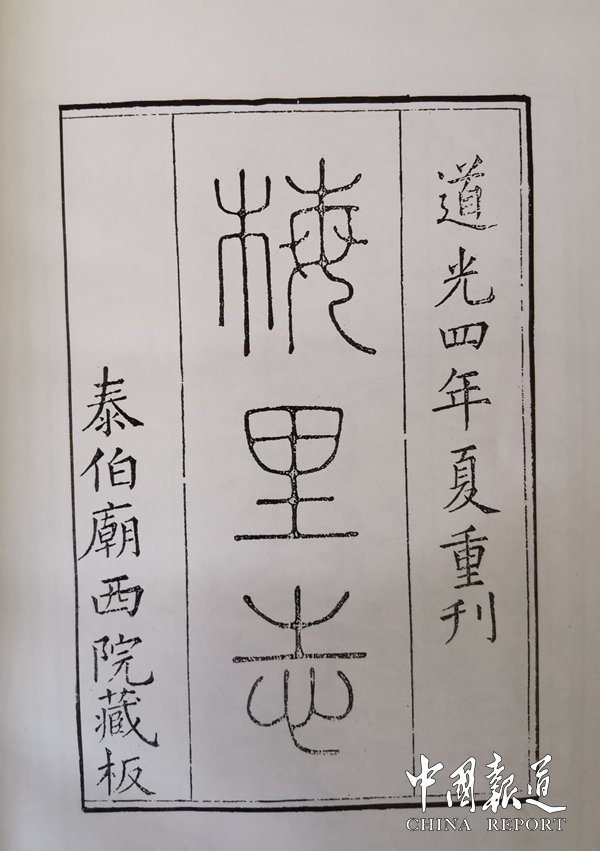 道光四年夏重刊
梅里志
泰伯廟西院藏板
中国报道
CHINA REPORT